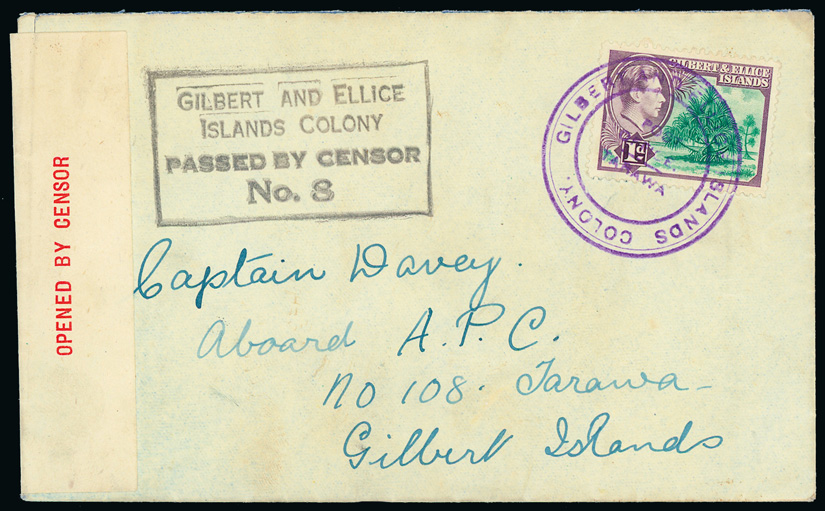 OPENED BY CENSOR
GILBERT AND ELLICE
ISLANDS COLONY
PASSED BY CENSOR
No. 8
GILBERT & ELLICE
ISLANDS
1d
ISLANDS COLONY.
TARAWA
Captain Davey.
Aboard A.P.C.
No 108. Tarawa-
Gilbert Islands